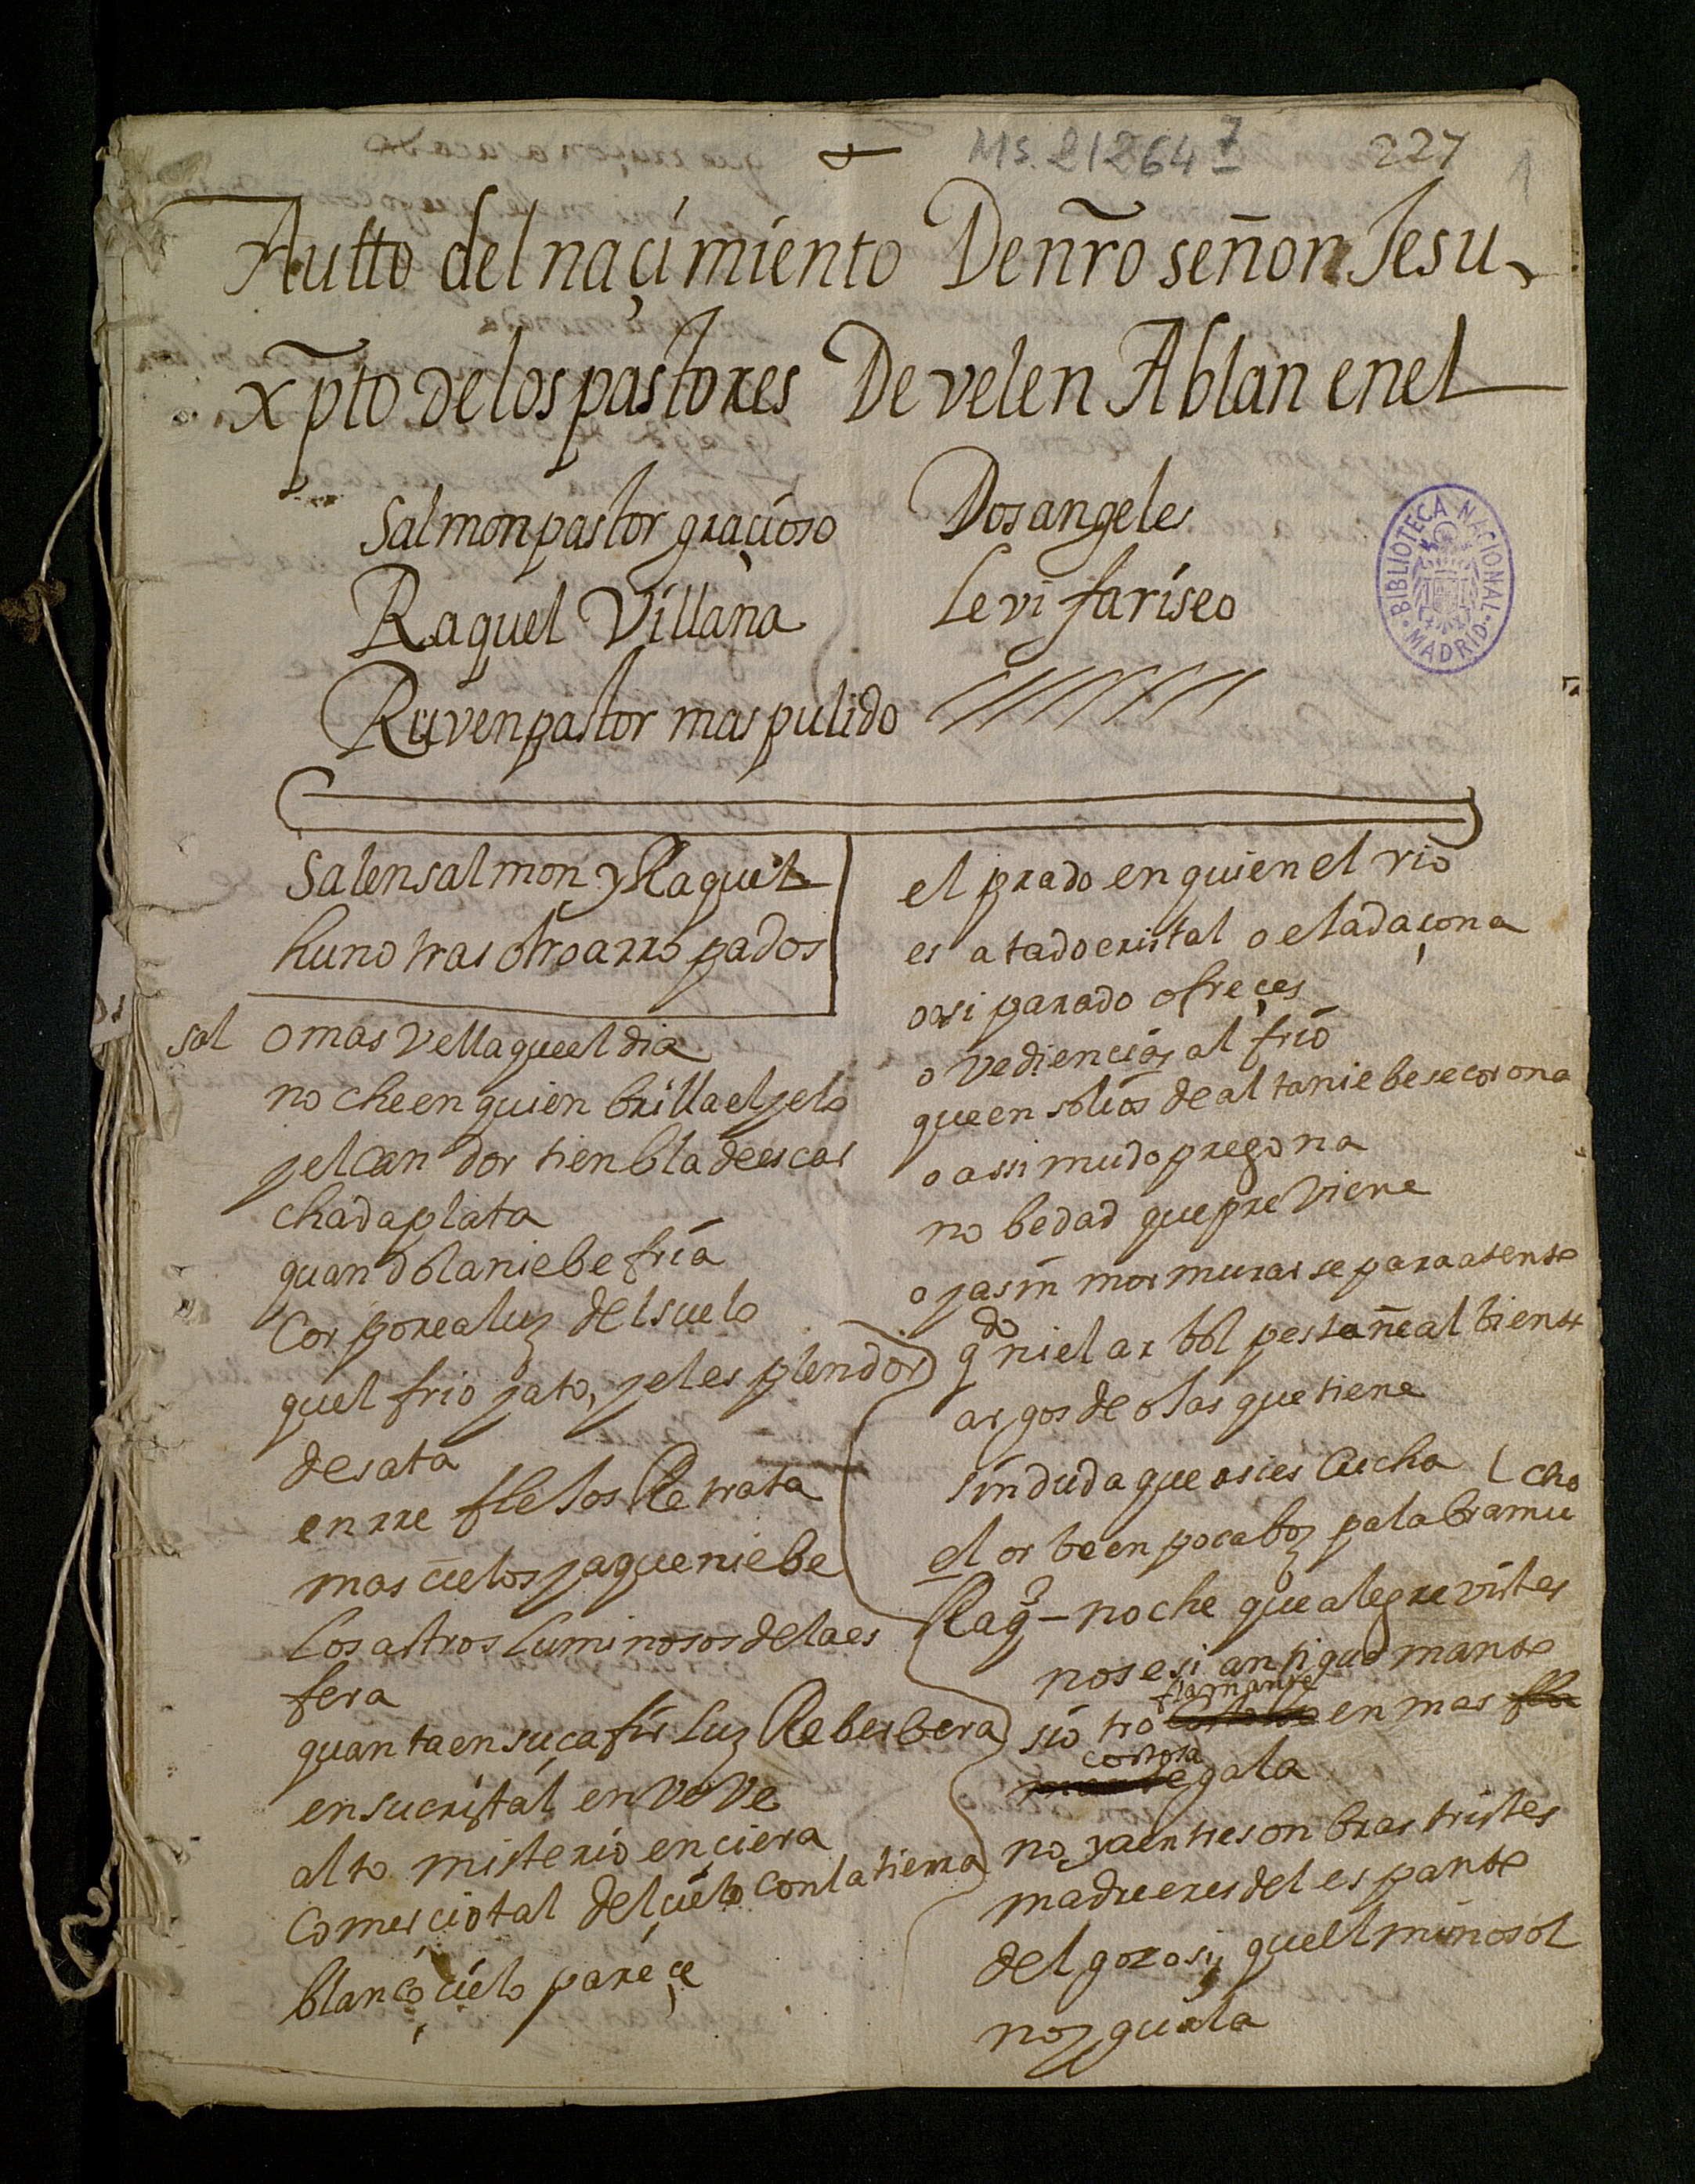 Ms. 21264 7
227
1
Autto del naçimiento De nr̃o señor Jesu
xp̃to de los pastores De velen Ablan en el
Salmon pastor graçioso
Raquel Villana
Ruven pastor mas pulido
Dos angeles
Levi fariseo
BIBLIOTECA NACIONAL
MADRID
Salen salmon y Raquel
huno tras otro arropados
sal o mas vella que el dia
noche en quien brilla el yelo
y el candor tienbla de escar
chada plata
quando la niebe fria
corporea luz del suelo
quel frio yato, y el esplendor
desata
en rreflelos Retrata
mas cielos ya que niebe
los astros luminosos de la es
fera
quanta en su çafir luz Reberbera
en su cristal enveve
alto misterio enciera
comercio tal del çielo con la tierra
blanco çielo pareçe
el prado en quien el rio
es atado cristal o elada çona
o asi parado ofreçes
o vediencias al frio
que en solios de alta niebe se corona
o assi mudo pregona
nobedad que previene
o ya sin mormurar se para atento
qdo ni el arbol pestañea al biento
argos de olas que tiene
sin duda que os escucha
el orbe en poca boz palabra mu
cho
Raq – noche que alegre vistes
no se si antiguo manto
sio tro flamante en mas
costosa gala
no ya entre sonbras tristes
madre eres del espanto
del gozo si, que el mismo sol
no yguala